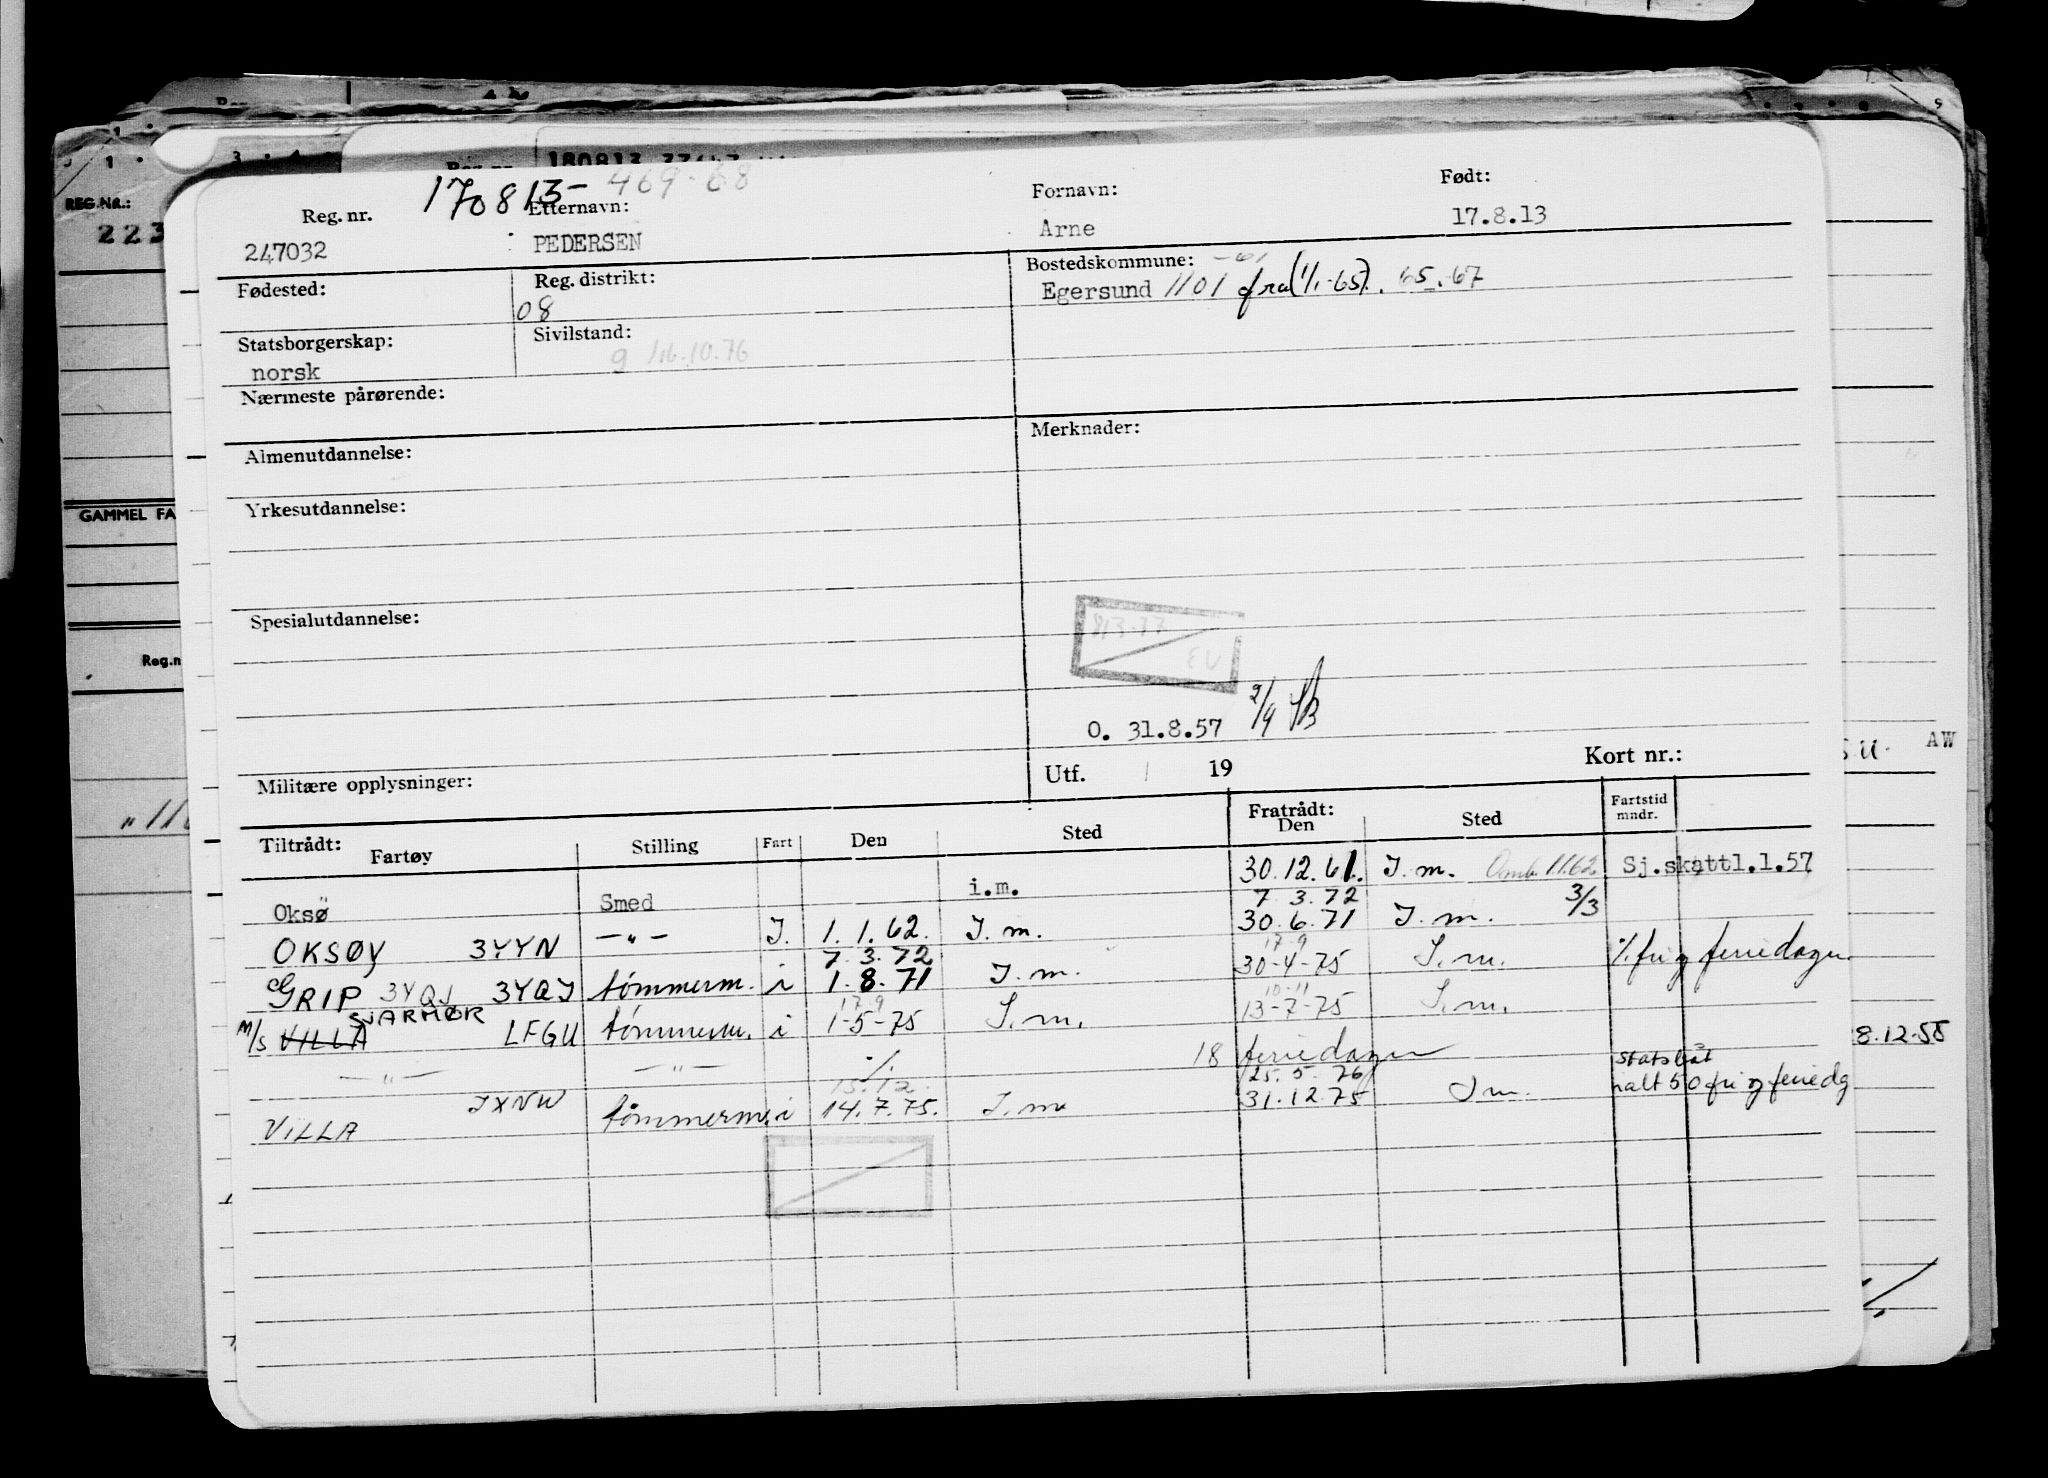 170813- 469-68
Reg. nr. Etternavn: Fornavn: Født:
247032 PEDERSEN Arne 17.8.13
Fødested: Reg. distrikt: Bostedskommune: -61
08 Egersund 1101 fra (1/1-65). 65.-67
Statsborgerskap: Sivilstand:
norsk g /16.10.76
Nærmeste pårørende:
Almenutdannelse: Merknader:
Yrkesutdannelse:
Spesialutdannelse:
O. 31.8.57 2/9
Militære opplysninger: Utf. / 19 Kort nr.:
Tiltrådt: Fartøy Stilling Fart Den Sted Fratrådt: Den Sted Fartstid mndr.
Oksø Smed i.m. 30.12.61. I.m. Sj.skattl.1.57
7.3.72 3/3
OKSØY 3YYN —"— I. 1.1.62. I.m. 30.6.71 I.m.
7.3.72 17-9
GRIP 3YQJ 3YQJ tømmerm. i 1.8.71 I.m. 30-4-75 I.m. ./. fri og feriedager
SVARMØR 17-9 10-11
M/S VILLA LFGU tømmerm. i 1-5-75 I.m. 13-7-75 I.m.
—"— —"— ./. 18 feriedager
15.12. 25.5.76 Statsbåt
VILLA JXNW tømmerm. i 14.7.75. I.m. 31.12.75 I.m. halt 50 fri og feriedg
REG.NR.:
223
GAMMEL FA
Reg.n
AW
8.12-58